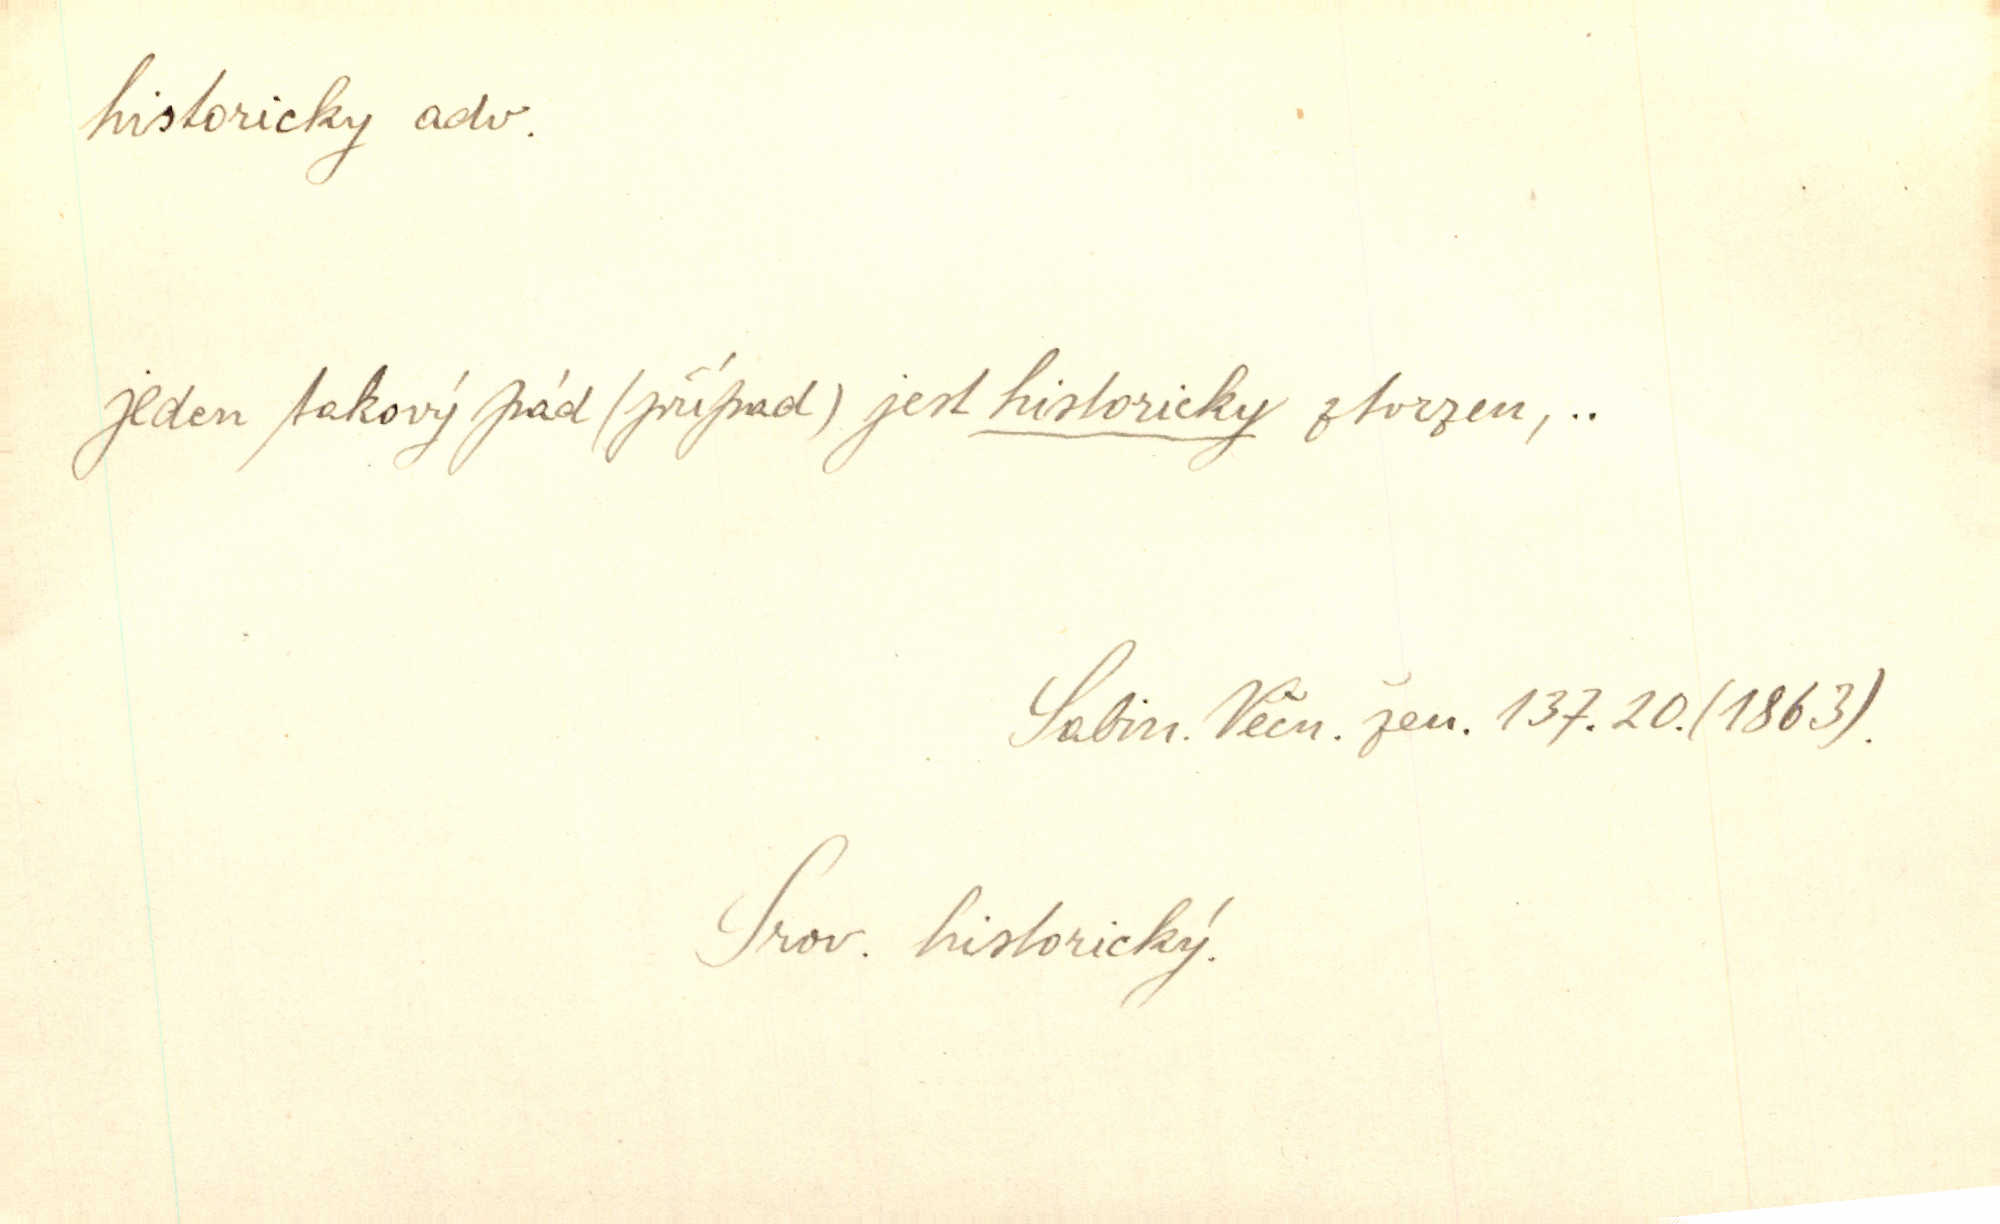 historicky adv.
jeden takový pád (případ) jest historicky ztvrzen, ..
Sabin. Věčn. žen. 137. 20. (1863).
Srov. historický.